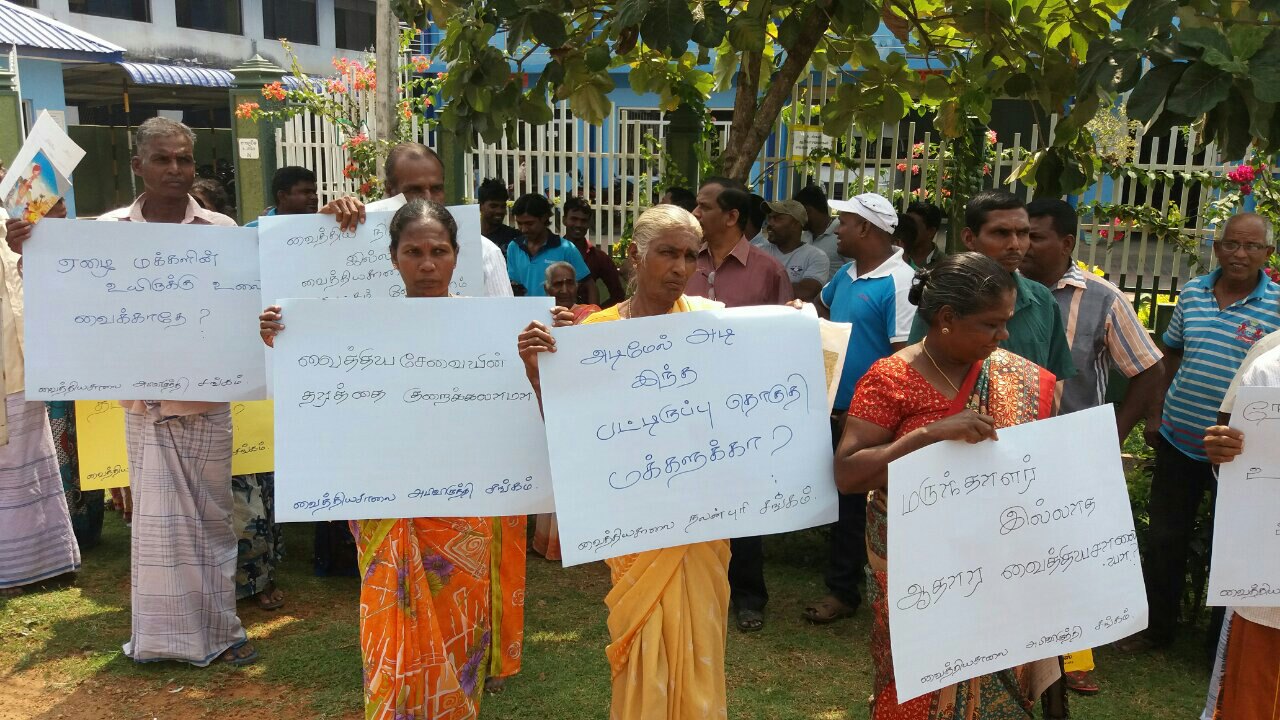 ஏழை மக்களின்
உயிருக்கு உலை
வைக்காதே ?
வைத்தியசாலை அபிவிருத்தி சங்கம்
வைத்திய
வைத்திய சேவையின்
தரத்தை குறைக்கலாமா
வைத்தியசாலை அபிவிருத்தி சங்கம்.
அடிமேல் அடி
இந்த
பட்டிருப்பு தொகுதி
மக்களுக்கா ?
வைத்தியசாலை நலன்புரி சங்கம்.
மருந்தாளர்
இல்லாத
ஆதார வைத்தியசாலை
வைத்தியசாலை அபிவிருத்தி சங்கம்.